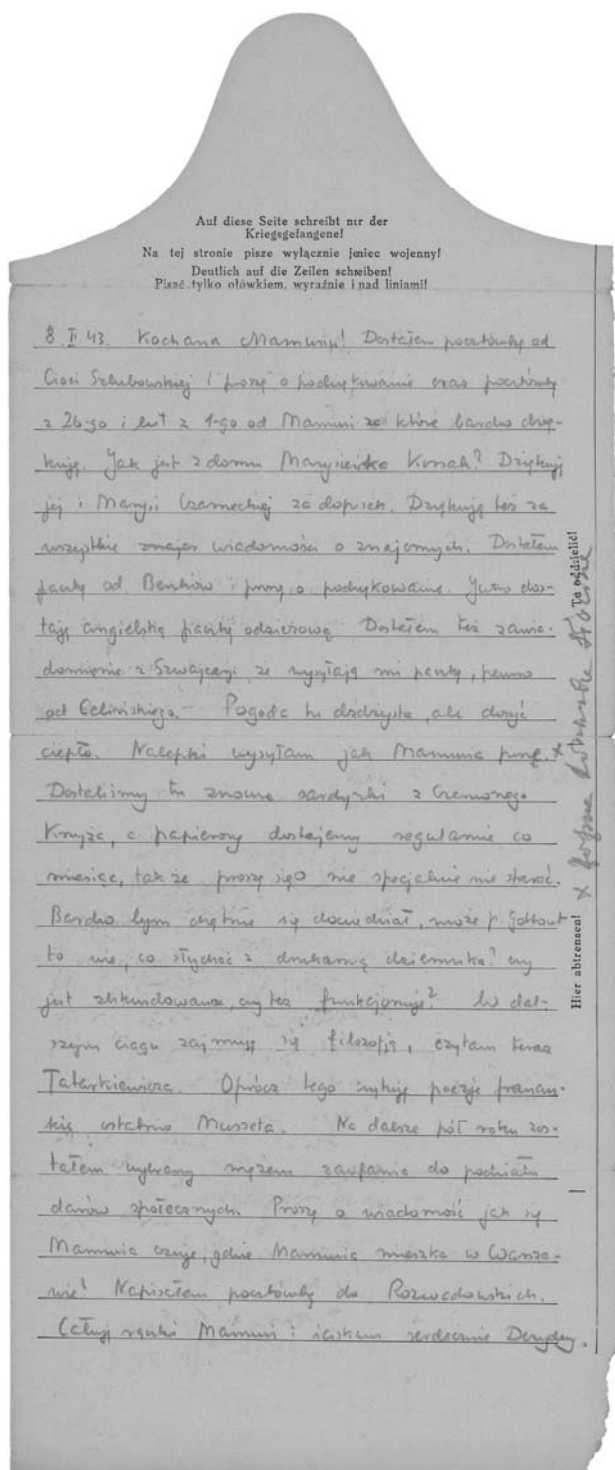 Auf diese Seite schreibt nur der
Kriegsgefangene!
Na tej stronie pisze wyłącznie jeniec wojenny!
Deutlich auf die Zeilen schreiben!
Pisać tylko ołówkiem, wyraźnie i nad liniami!
8 I 43. Kochana Mamusiu! Dostałem pocztówkę od
Cioci Szlubowskiej i proszę o podziękowanie oraz pocztówkę
z 26-go i list z 1-go od Mamusi za które bardzo dzię-
kuję. Jak jest z domu Marysieńka Kossak? Dziękuję
jej i Marysi Czarneckiej za dopisek. Dziękuję też za
wszystkie wiadomości o znajomych. Dostałem
paczkę od Benków i proszę o podziękowanie. Jutro dos-
taję angielską paczkę odzieżową. Dostałem też zawia-
domienie z Szwajcarji, że wysyłają mi paczkę, pewno
od Celińskiego. - Pogoda tu dżdżysta, ale dosyć
ciepło. Nalepki wysyłam jak Mamusia prosi. x
Dostaliśmy tu znowu sardynki z Czerwonego
Krzyża, a papierosy dostajemy regularnie co
miesiąc, tak że proszę się o nie specjalnie nie starać.
Bardzo bym chętnie się dowiedział, może p.
to wie, co słychać z drukarnią dziennika? czy
jest zlikwidowana, czy też funkcjonuje? W dal-
szym ciągu zajmuję się filozofją, czytam teraz
Tatarkiewicza. Oprócz tego czytuję poezję francus-
ką ostatnio Musseta. Na dalsze pół roku zos-
tałem wybrany mężem zaufania do podziału
darów społecznych. Proszę o wiadomość jak się
Mamusia czuje, gdzie Mamusia mieszka w Warsza-
wie? Napisałem pocztówkę do Rozwadowskich.
Całuję rączki Mamusi i ściskam serdecznie
Hier abtrennen!
Tu oddzielić!
x